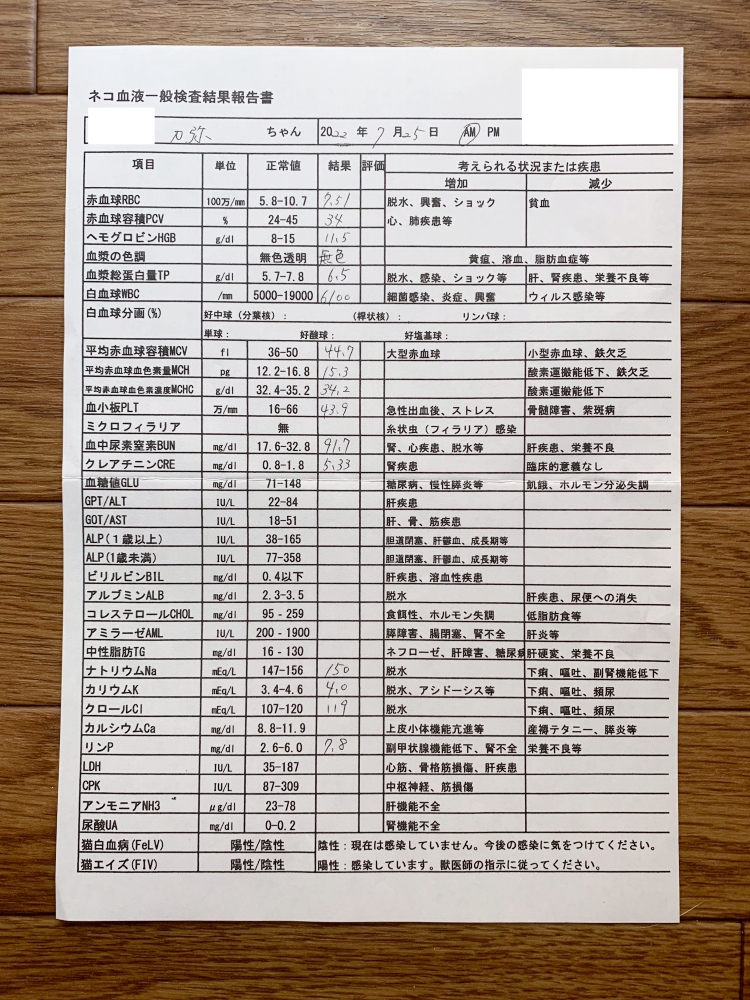 ネコ血液一般検査結果報告書
刀弥 ちゃん 2022 年 7 月 25 日 AM PM
項目 単位 正常値 結果 評価 考えられる状況または疾患
増加 減少
赤血球RBC 100万/mm 5.8-10.7 7.51 脱水、興奮、ショック 貧血
赤血球容積PCV % 24-45 34 心、肺疾患等
ヘモグロビンHGB g/dl 8-15 11.5
血漿の色調 無色透明 無色 黄疸、溶血、脂肪血症等
血漿総蛋白量TP g/dl 5.7-7.8 6.5 脱水、感染、ショック等 肝、腎疾患、栄養不良等
白血球WBC /mm 5000-19000 6100 細菌感染、炎症、興奮 ウィルス感染等
白血球分画(%) 好中球（分葉核）： （桿状核）： リンパ球：
単球： 好酸球： 好塩基球：
平均赤血球容積MCV fl 36-50 44.7 大型赤血球 小型赤血球、鉄欠乏
平均赤血球血色素量MCH pg 12.2-16.8 15.3 酸素運搬能低下、鉄欠乏
平均赤血球血色素濃度MCHC g/dl 32.4-35.2 34.2 酸素運搬能低下
血小板PLT 万/mm 16-66 43.9 急性出血後、ストレス 骨髄障害、紫斑病
ミクロフィラリア 無 糸状虫（フィラリア）感染
血中尿素窒素BUN mg/dl 17.6-32.8 91.7 腎、心疾患、脱水等 肝疾患、栄養不良
クレアチニンCRE mg/dl 0.8-1.8 5.33 腎疾患 臨床的意義なし
血糖値GLU mg/dl 71-148 糖尿病、慢性膵炎等 飢餓、ホルモン分泌失調
GPT/ALT IU/L 22-84 肝疾患
GOT/AST IU/L 18-51 肝、骨、筋疾患
ALP(１歳以上) IU/L 38-165 胆道閉塞、肝鬱血、成長期等
ALP(1歳未満) IU/L 77-358 胆道閉塞、肝鬱血、成長期等
ビリルビンBIL mg/dl 0.4以下 肝疾患、溶血性疾患
アルブミンALB mg/dl 2.3-3.5 脱水 肝疾患、尿便への消失
コレステロールCHOL mg/dl 95-259 食餌性、ホルモン失調 低脂肪食等
アミラーゼAML IU/L 200-1900 膵障害、腸閉塞、腎不全 肝炎等
中性脂肪TG mg/dl 16-130 ネフローゼ、肝障害、糖尿病 肝硬変、栄養不良
ナトリウムNa mEq/L 147-156 150 脱水 下痢、嘔吐、副腎機能低下
カリウムK mEq/L 3.4-4.6 4.0 脱水、アシドーシス等 下痢、嘔吐、頻尿
クロールCl mEq/L 107-120 119 脱水 下痢、嘔吐、頻尿
カルシウムCa mg/dl 8.8-11.9 上皮小体機能亢進等 産褥テタニー、膵炎等
リンP mg/dl 2.6-6.0 7.8 副甲状腺機能低下、腎不全 栄養不良等
LDH IU/L 35-187 心筋、骨格筋損傷、肝疾患
CPK IU/L 87-309 中枢神経、筋損傷
アンモニアNH3 μg/dl 23-78 肝機能不全
尿酸UA mg/dl 0-0.2 腎機能不全
猫白血病(FeLV) 陽性/陰性 陰性：現在は感染していません。今後の感染に気をつけてください。
猫エイズ(FIV) 陽性/陰性 陽性：感染しています。獣医師の指示に従ってください。